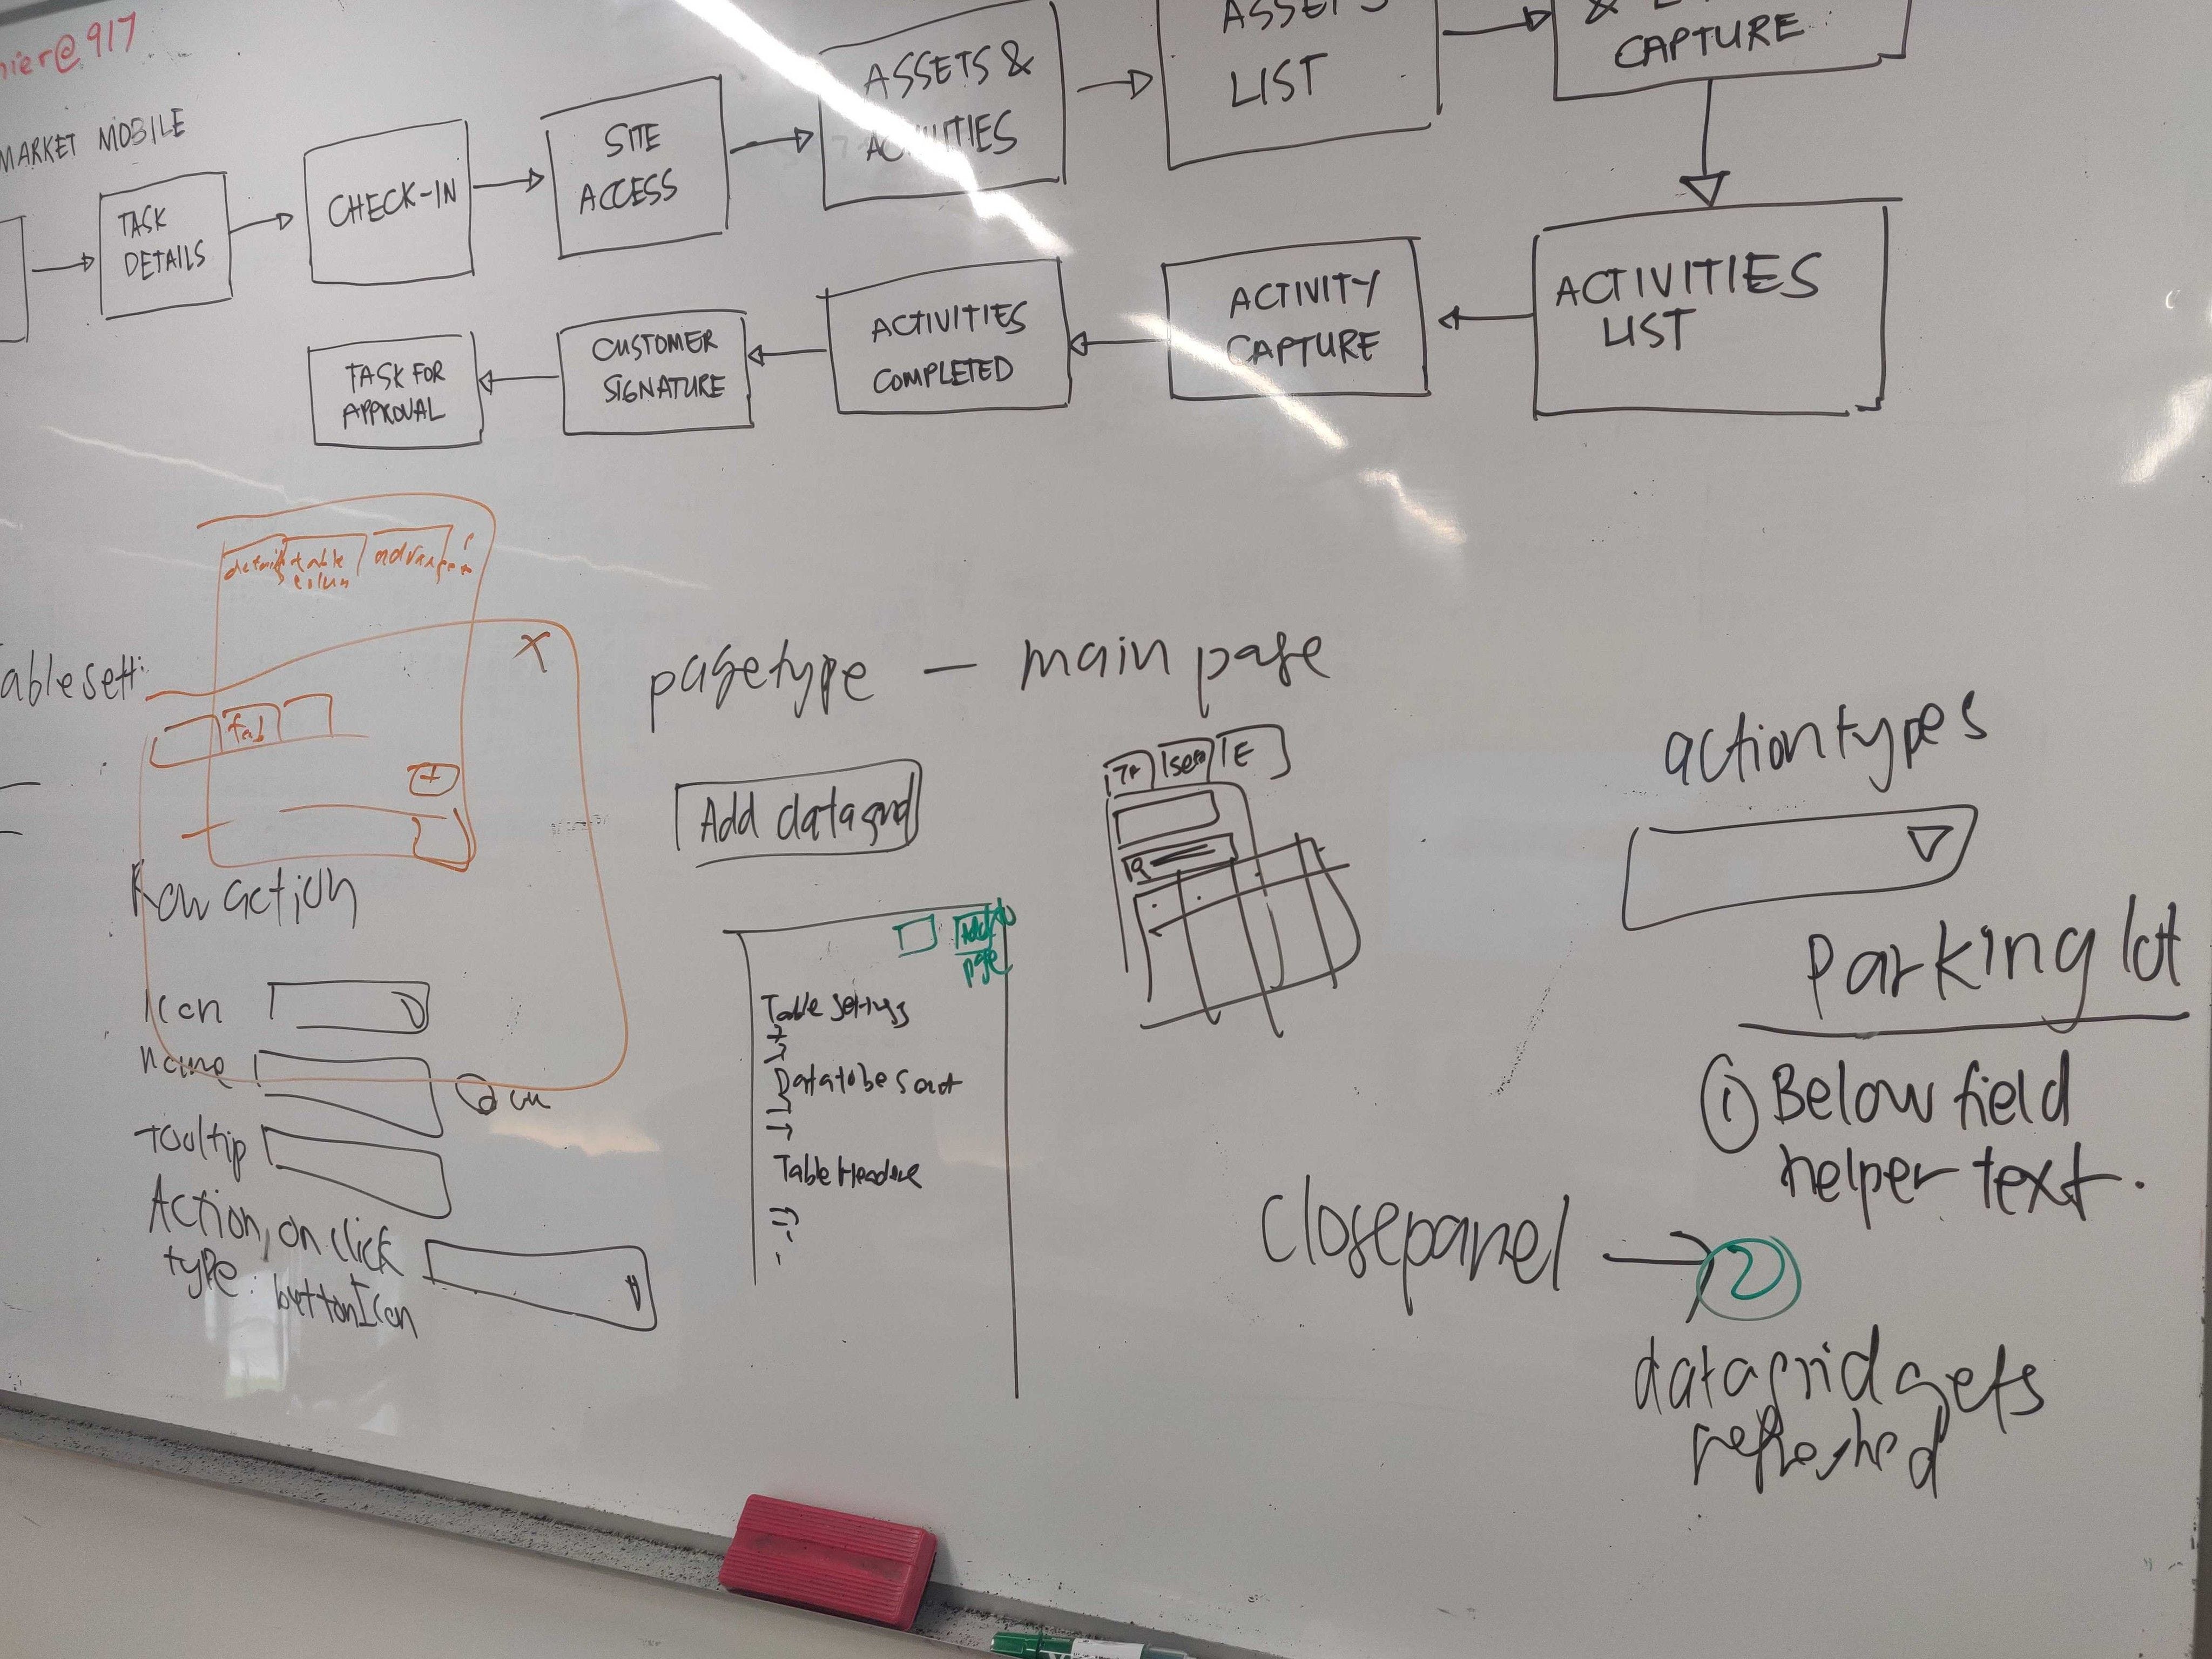 @917
MARKET MOBILE
TASK
DETAILS
CHECK-IN
SITE
ACCESS
ASSETS &
ACTIVITIES
ASSETS
LIST
&
CAPTURE
ACTIVITIES
LIST
ACTIVITY
CAPTURE
ACTIVITIES
COMPLETED
CUSTOMER
SIGNATURE
TASK FOR
APPROVAL
table
colum
X
tab
+
Row action
Icon
name
Tooltip
Action, on click
type: buttonIcon
pagetype — main page
Add datagrid
Add
page
Table Settings
Table Header
E
action types
Parking lot
① Below field
helper text.
Closepanel → ②
datagrid gets
refreshed